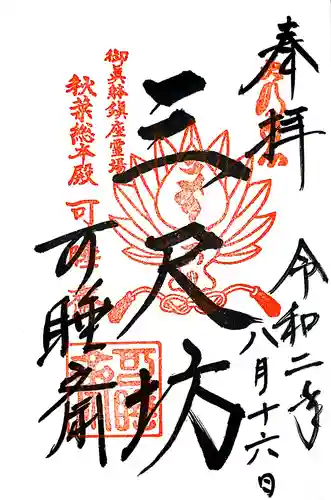 奉拝
令和二年
八月十六日
三尺坊
御眞躰鎮座霊場
秋葉總本殿
可睡斎
可睡斎